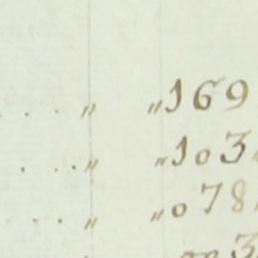 . . . " "169
. . " "103"
. . . " "078"